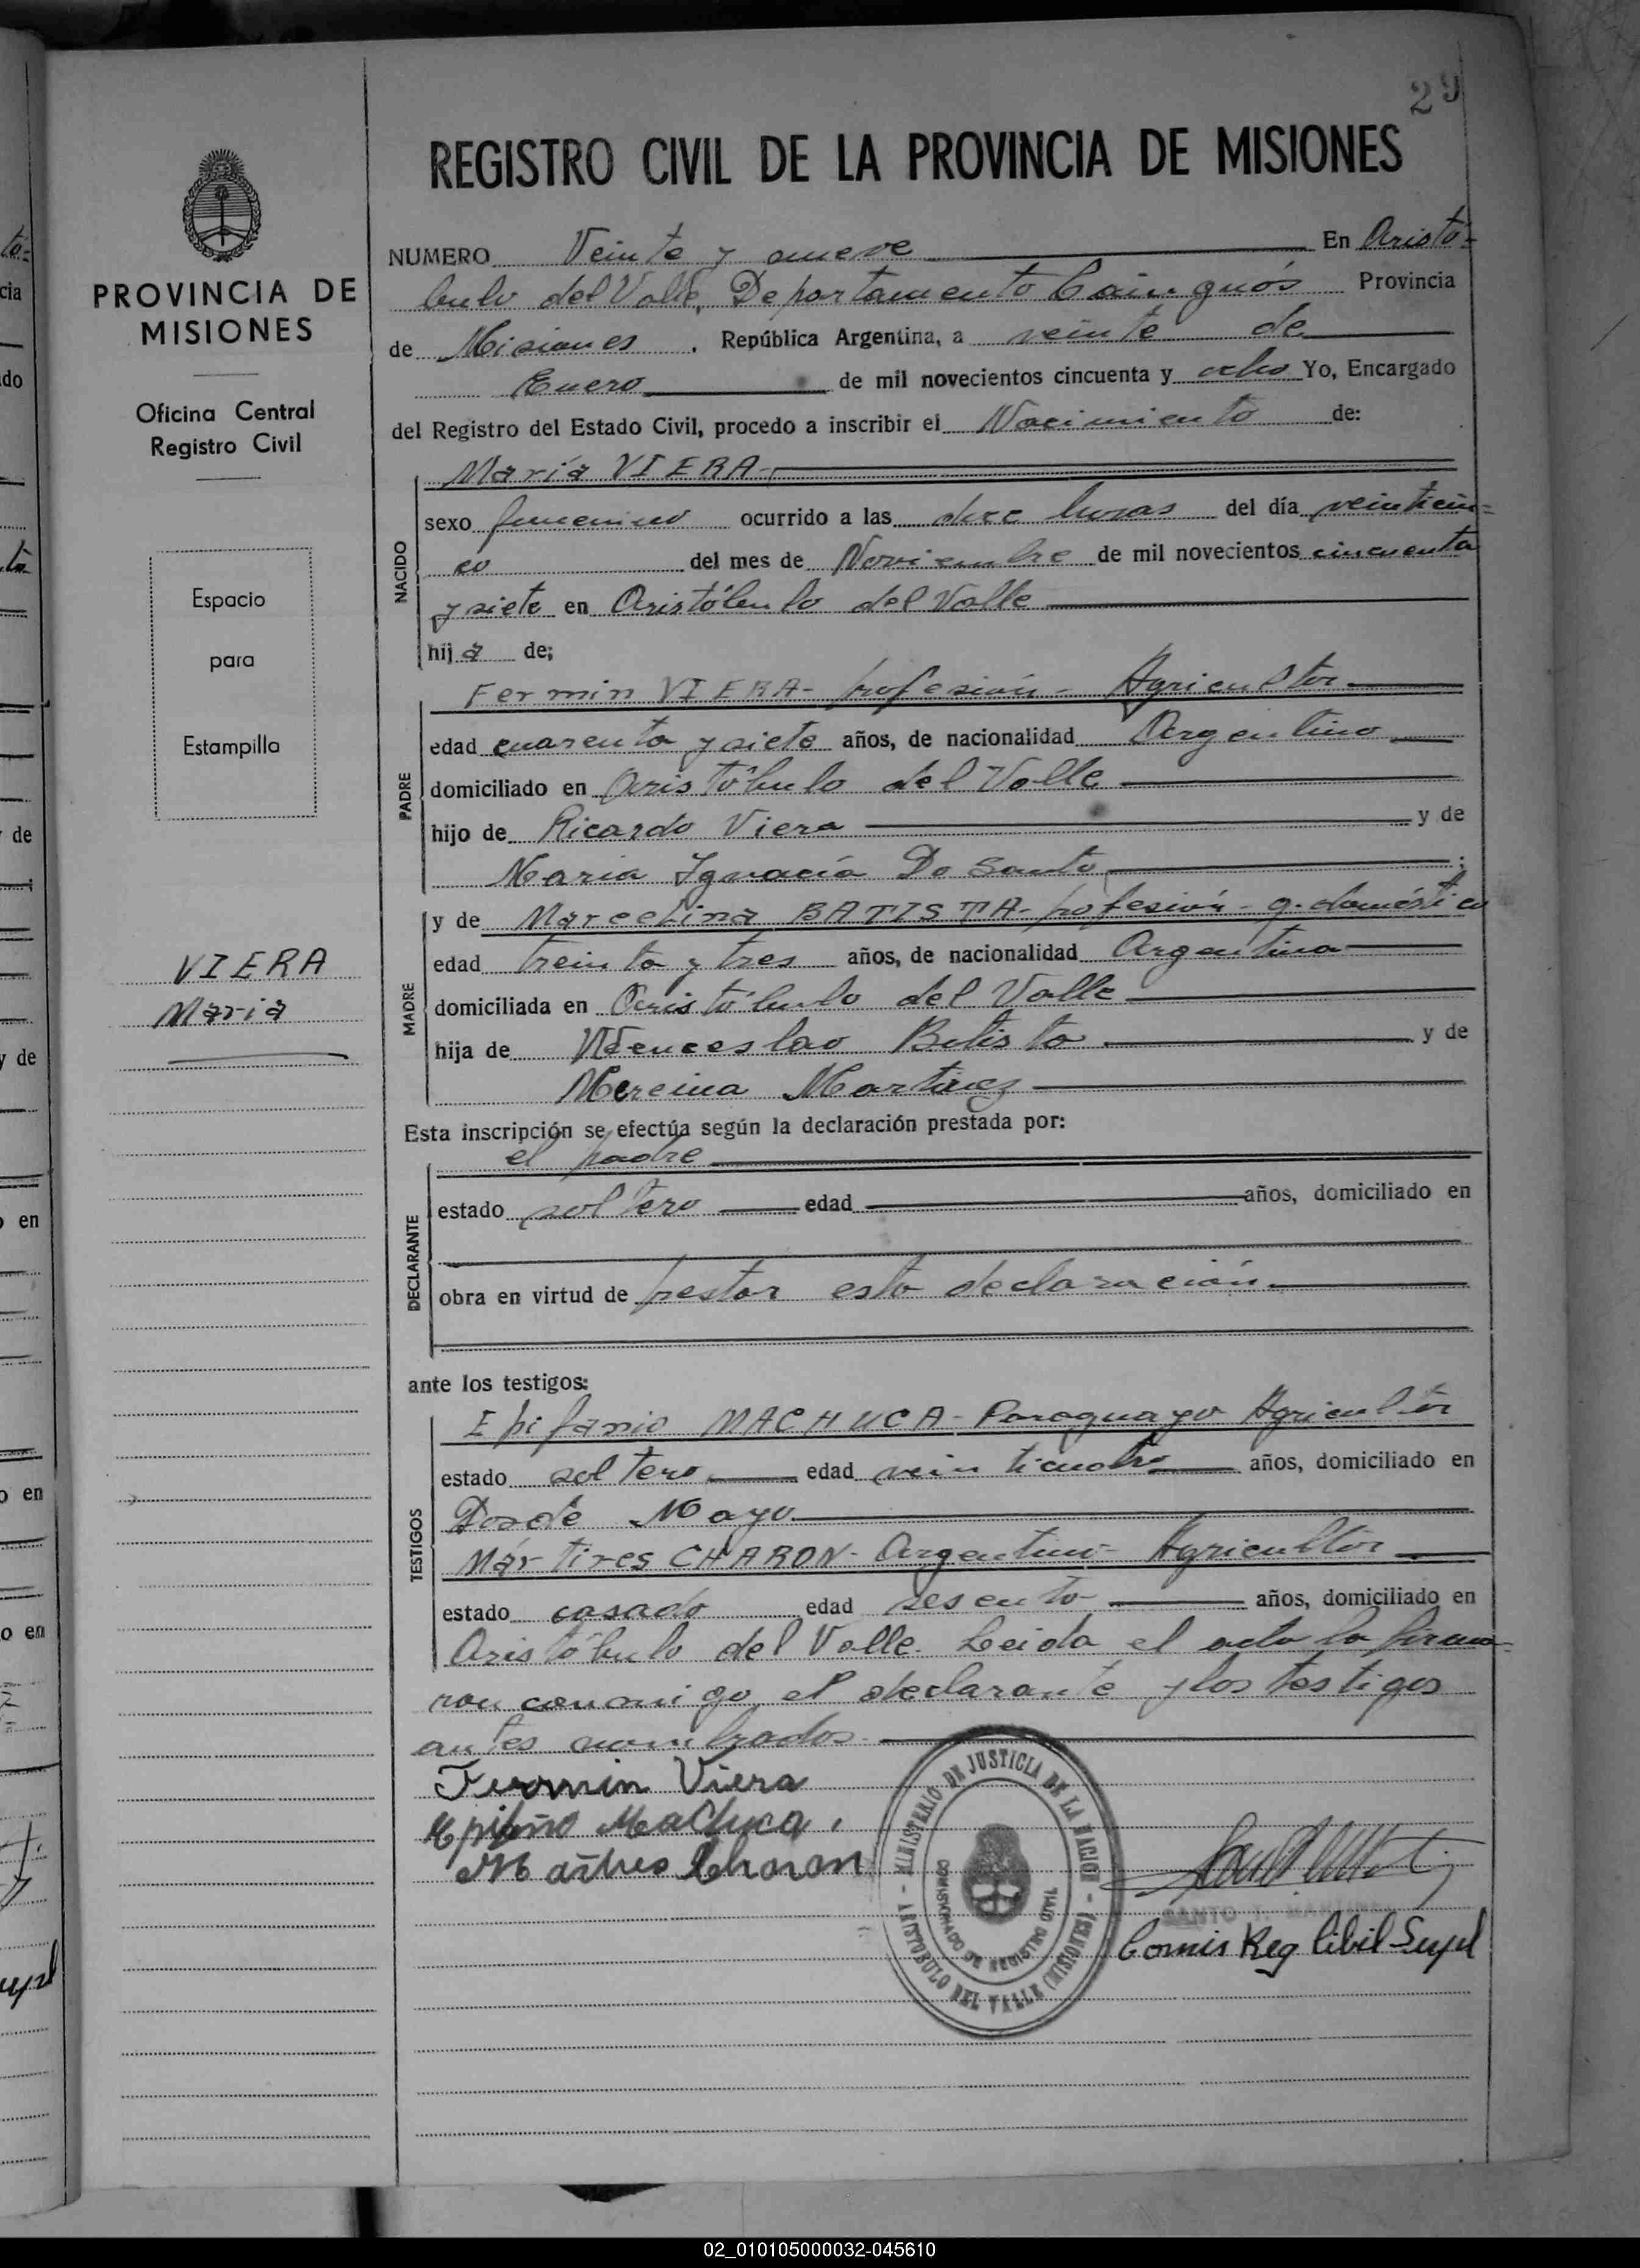 29
REGISTRO CIVIL DE LA PROVINCIA DE MISIONES
PROVINCIA DE
MISIONES
Oficina Central
Registro Civil
Espacio
para
Estampilla
VIERA
Maria
NUMERO Veinte y nueve En Aristó-
bulo del Valle, Departamento Cainguás Provincia
de Misiones, República Argentina, a veinte de
Enero de mil novecientos cincuenta y ocho Yo, Encargado
del Registro del Estado Civil, procedo a inscribir el Nacimiento de:
NACIDO
María VIERA
sexo femenino ocurrido a las doce horas del día veinticin-
co del mes de Noviembre de mil novecientos cincuenta
y siete en Aristóbulo del Valle
hija de;
PADRE
Fermin VIERA- profesión- Agricultor
edad cuarenta y siete años, de nacionalidad Argentino
domiciliado en Aristóbulo del Valle
hijo de Ricardo Viera y de
Maria Ignacia Do Santo;
MADRE
y de Marcelina BATISTA- profesión- q. doméstico
edad treinta y tres años, de nacionalidad Argentina
domiciliada en Aristóbulo del Valle
hija de Wenceslao Batista y de
Mereina Martinez
Esta inscripción se efectúa según la declaración prestada por:
DECLARANTE
el padre
estado soltero edad años, domiciliado en
obra en virtud de prestar esta declaración
ante los testigos:
TESTIGOS
Epifanio MACHUCA- Paraguayo Agricultor
estado soltero edad veinticuatro años, domiciliado en
Dos de Mayo
Mártires CHARON- Argentino- Agricultor
estado casado edad sesenta años, domiciliado en
Aristóbulo del Valle. Leida el acta la firma-
ron conmigo, el declarante y los testigos
antes nombrados.
Fermin Viera
Machuca
Charon
MINISTERIO DE JUSTICIA DE LA NACION
COMISIONADO DE REGISTRO CIVIL
ARISTOBULO DEL VALLE (MISIONES)
SANTO
Comis Reg Cibil Supl
02_010105000032-045610